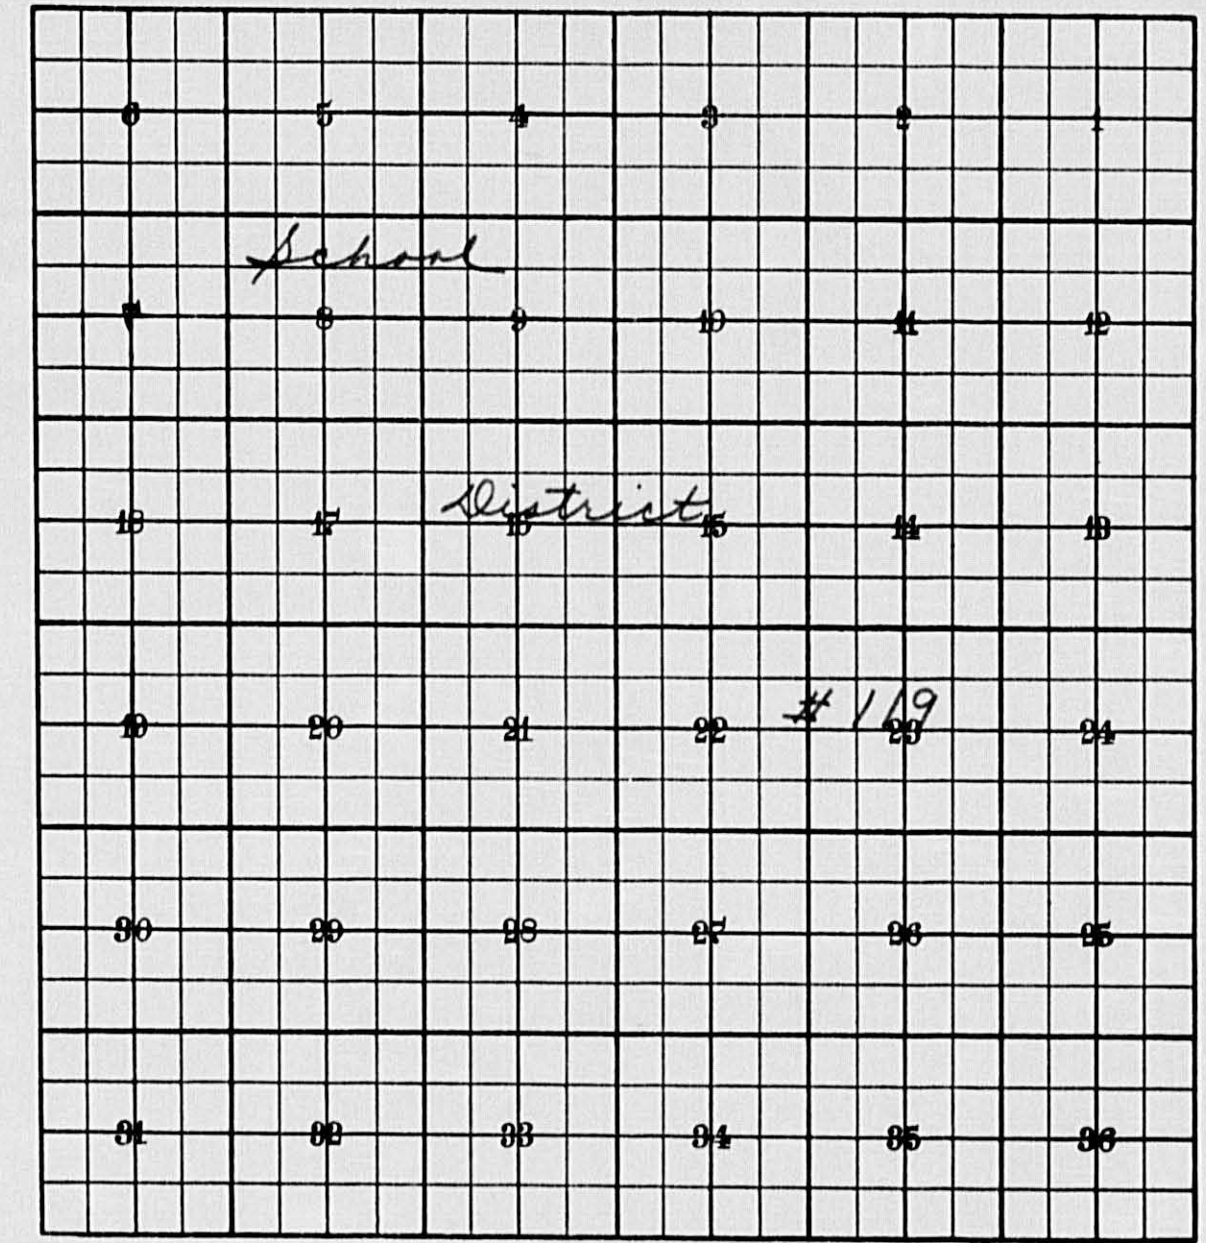 6 5 4 3 2 1
School
7 8 9 10 11 12
District
18 17 16 15 14 13
# 119
19 20 21 22 23 24
30 29 28 27 26 25
31 32 33 34 35 36